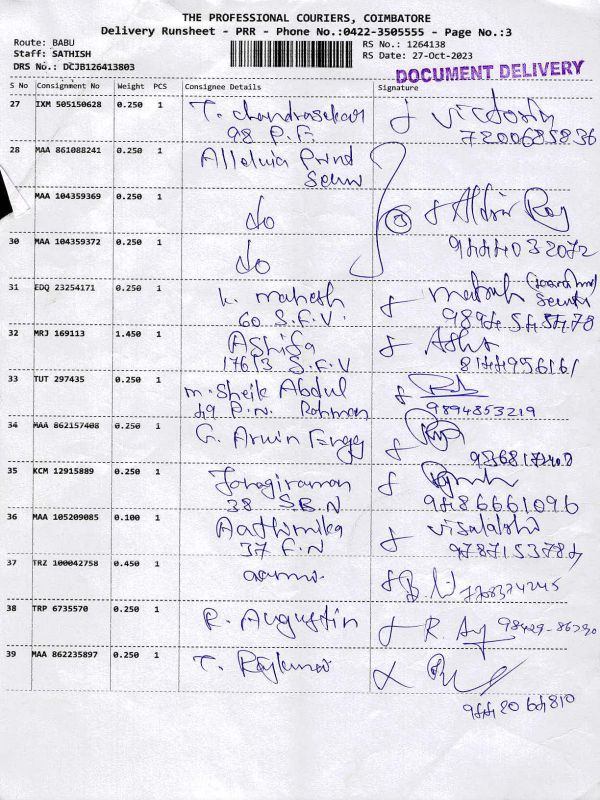 THE PROFESSIONAL COURIERS, COIMBATORE
Delivery Runsheet - PRR - Phone No.:0422-3505555 - Page No.:3
Route: BABU
Staff: SATHISH
DRS No.: DCJB126413803
RS No.: 1264138
RS Date: 27-Oct-2023
DOCUMENT DELIVERY
S No Consignment No Weight PCS Consignee Details Signature
27 IXM 505150628 0.250 1 T. chandrasekar Victoria
98 P.F 7200685836
28 MAA 861088241 0.250 1 Alleluia Prind
MAA 104359369 0.250 1 do Aldrin Roy
30 MAA 104359372 0.250 1 do 9444032072
31 EDQ 23254171 0.250 1 K. Mahesh
60 S.F.V.
32 MRJ 169113 1.450 1 Ashifa Asha
176/3 S.F.V 8144956161
33 TUT 297435 0.250 1 M. Sheik Abdul
49 P.N. Rahman 9894853219
34 MAA 862157408 0.250 1 G. Arwin
35 KCM 12915889 0.250 1 Janagiraman
38 S.B.N 9486661096
36 MAA 105209085 0.100 1 Aathimika Visalatshi
37 F.N 9787153784
37 TRZ 100042758 0.450 1
38 TRP 6735570 0.250 1 R. Augustin R. Aug 98429-86290
39 MAA 862235897 0.250 1 T. Rajkumar
9442064810